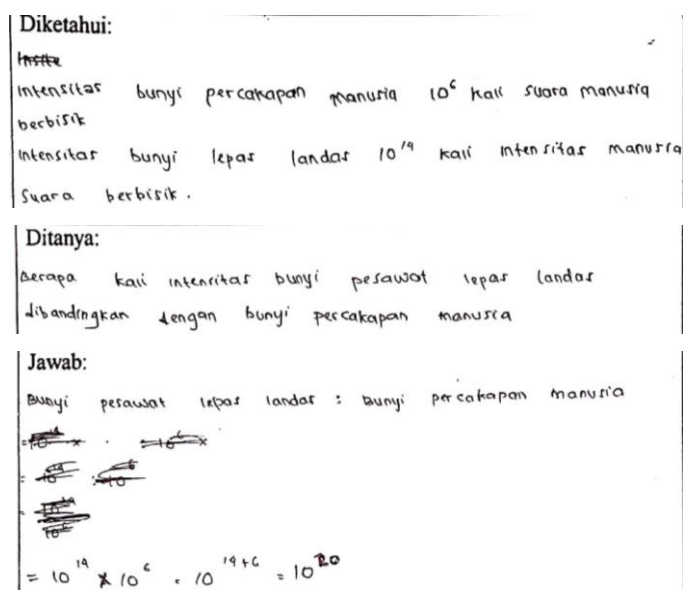 Diketahui:
Intensitas bunyi percakapan manusia 10⁶ kali suara manusia
berbisik
Intensitas bunyi lepas landas 10¹⁴ kali intensitas manusia
Suara berbisik.
Ditanya:
Berapa kali intensitas bunyi pesawat lepas landas
dibandingkan dengan bunyi percakapan manusia
Jawab:
Bunyi pesawat lepas landas : Bunyi percakapan manusia
= 10¹⁴ x 10⁶ = 10¹⁴⁺⁶ = 10²⁰